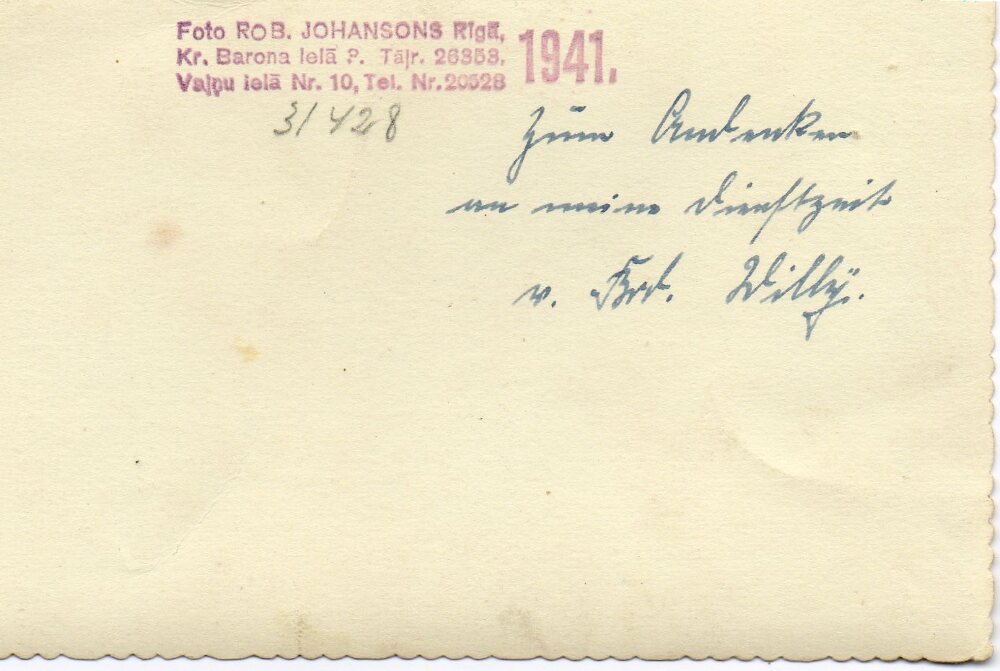 Foto ROB. JOHANSONS Rīgā,
Kr. Barona ielā Tāļr. 26353,
Vaļņu ielā Nr. 10, Tel. Nr. 20528
1941.
31428
Zum Andenken
an meine Dienstzeit
v. Willy.